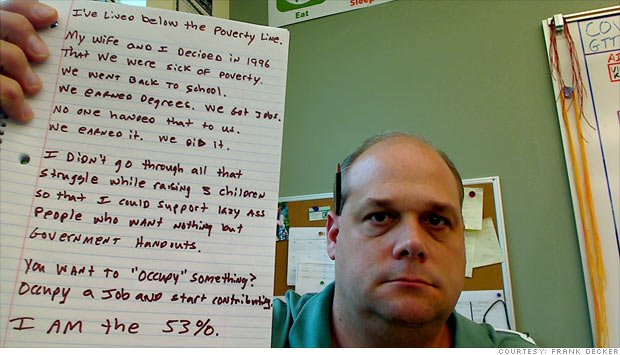 Eat
Sleep
I've lived below the Poverty Line.
My wife and I decided in 1996
that we were sick of poverty.
We went back to school.
We earned degrees. We got jobs.
No one handed that to us.
We earned it. We did it.
I didn't go through all that
struggle while raising 3 children
so that I could support lazy ass
people who want nothing but
Government Handouts.
You want to "Occupy" something?
Occupy a Job and start contributing.
I AM the 53%.
COV
GTT
COURTESY: FRANK DECKER